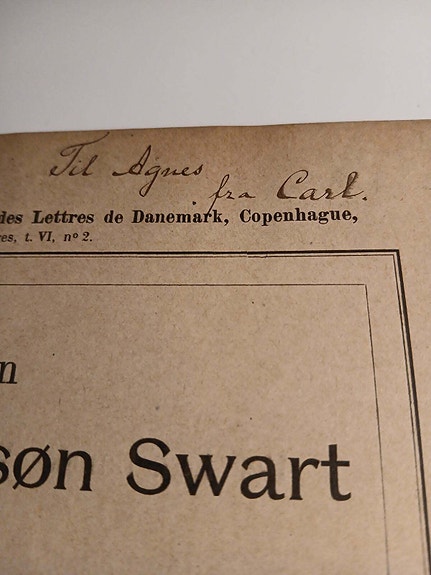 Til Agnes
fra Carl.
des Lettres de Danemark, Copenhague,
res, t. VI, nº 2.
n
søn Swart